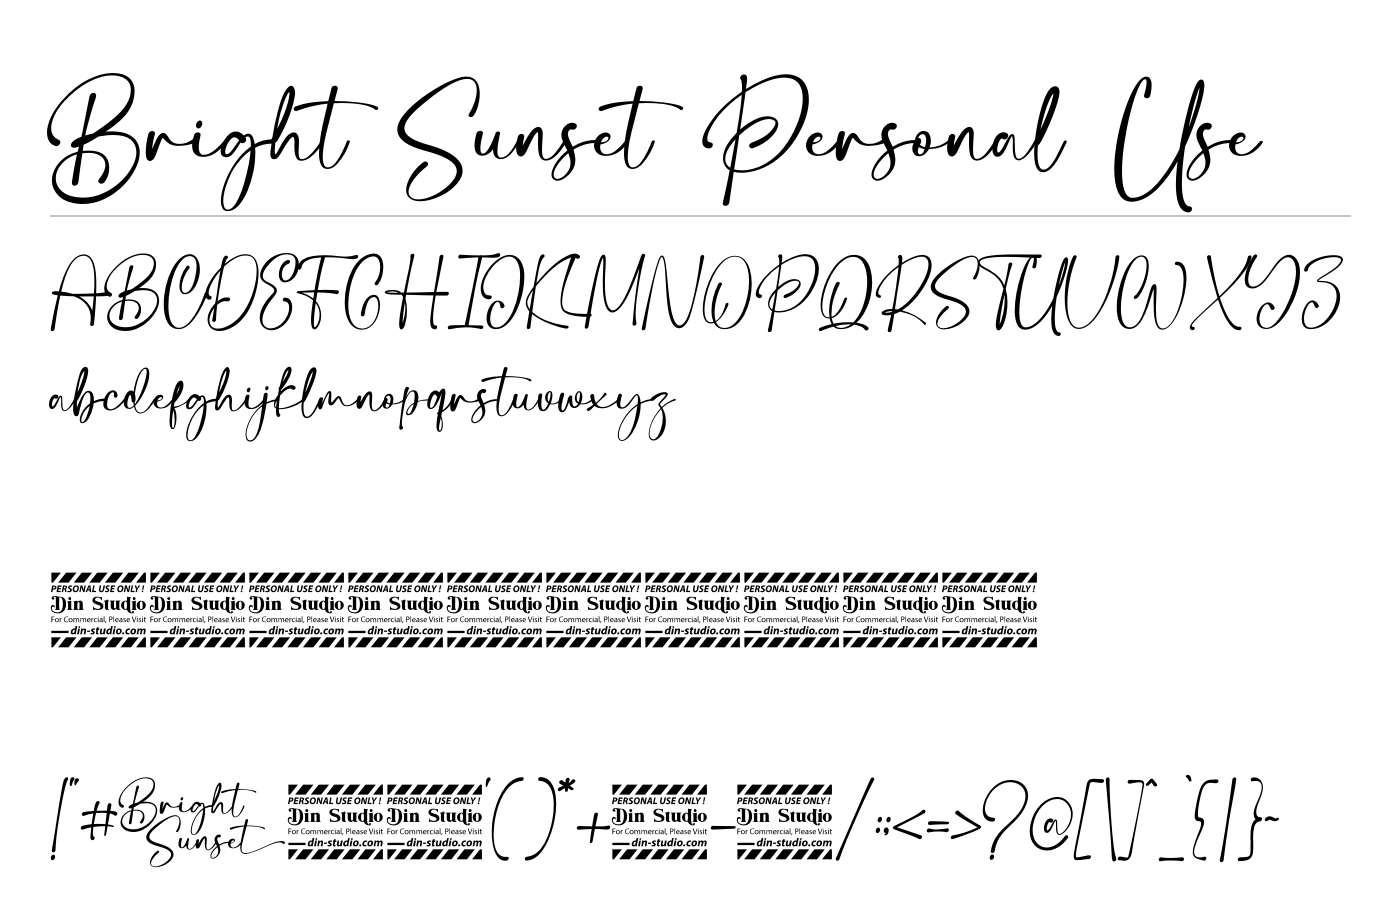 Bright Sunset Personal Use
ABCDEFGHIJKLMNOPQRSTUVWXYZ
abcdefghijklmnopqrstuvwxyz
PERSONAL USE ONLY ! PERSONAL USE ONLY ! PERSONAL USE ONLY ! PERSONAL USE ONLY ! PERSONAL USE ONLY ! PERSONAL USE ONLY ! PERSONAL USE ONLY ! PERSONAL USE ONLY ! PERSONAL USE ONLY ! PERSONAL USE ONLY !
Din Studio Din Studio Din Studio Din Studio Din Studio Din Studio Din Studio Din Studio Din Studio Din Studio
For Commercial, Please Visit For Commercial, Please Visit For Commercial, Please Visit For Commercial, Please Visit For Commercial, Please Visit For Commercial, Please Visit For Commercial, Please Visit For Commercial, Please Visit For Commercial, Please Visit For Commercial, Please Visit
din-studio.com din-studio.com din-studio.com din-studio.com din-studio.com din-studio.com din-studio.com din-studio.com din-studio.com din-studio.com
!"# Bright Sunset PERSONAL USE ONLY ! Din Studio For Commercial, Please Visit din-studio.com PERSONAL USE ONLY ! Din Studio For Commercial, Please Visit din-studio.com '()*+ PERSONAL USE ONLY ! Din Studio For Commercial, Please Visit din-studio.com - PERSONAL USE ONLY ! Din Studio For Commercial, Please Visit din-studio.com /:;<=>?@[\]^_`{|}~